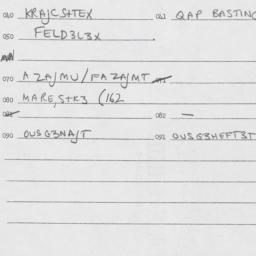 040 KRAJCS+TEX 041 QAP BASTING
050 FELD3L3X
070 AZAJMU/FAZAJMT
080 MARE,S+K3 (162
082 —
090 OUSG3NAJT 091 OUSG3HEFT3T